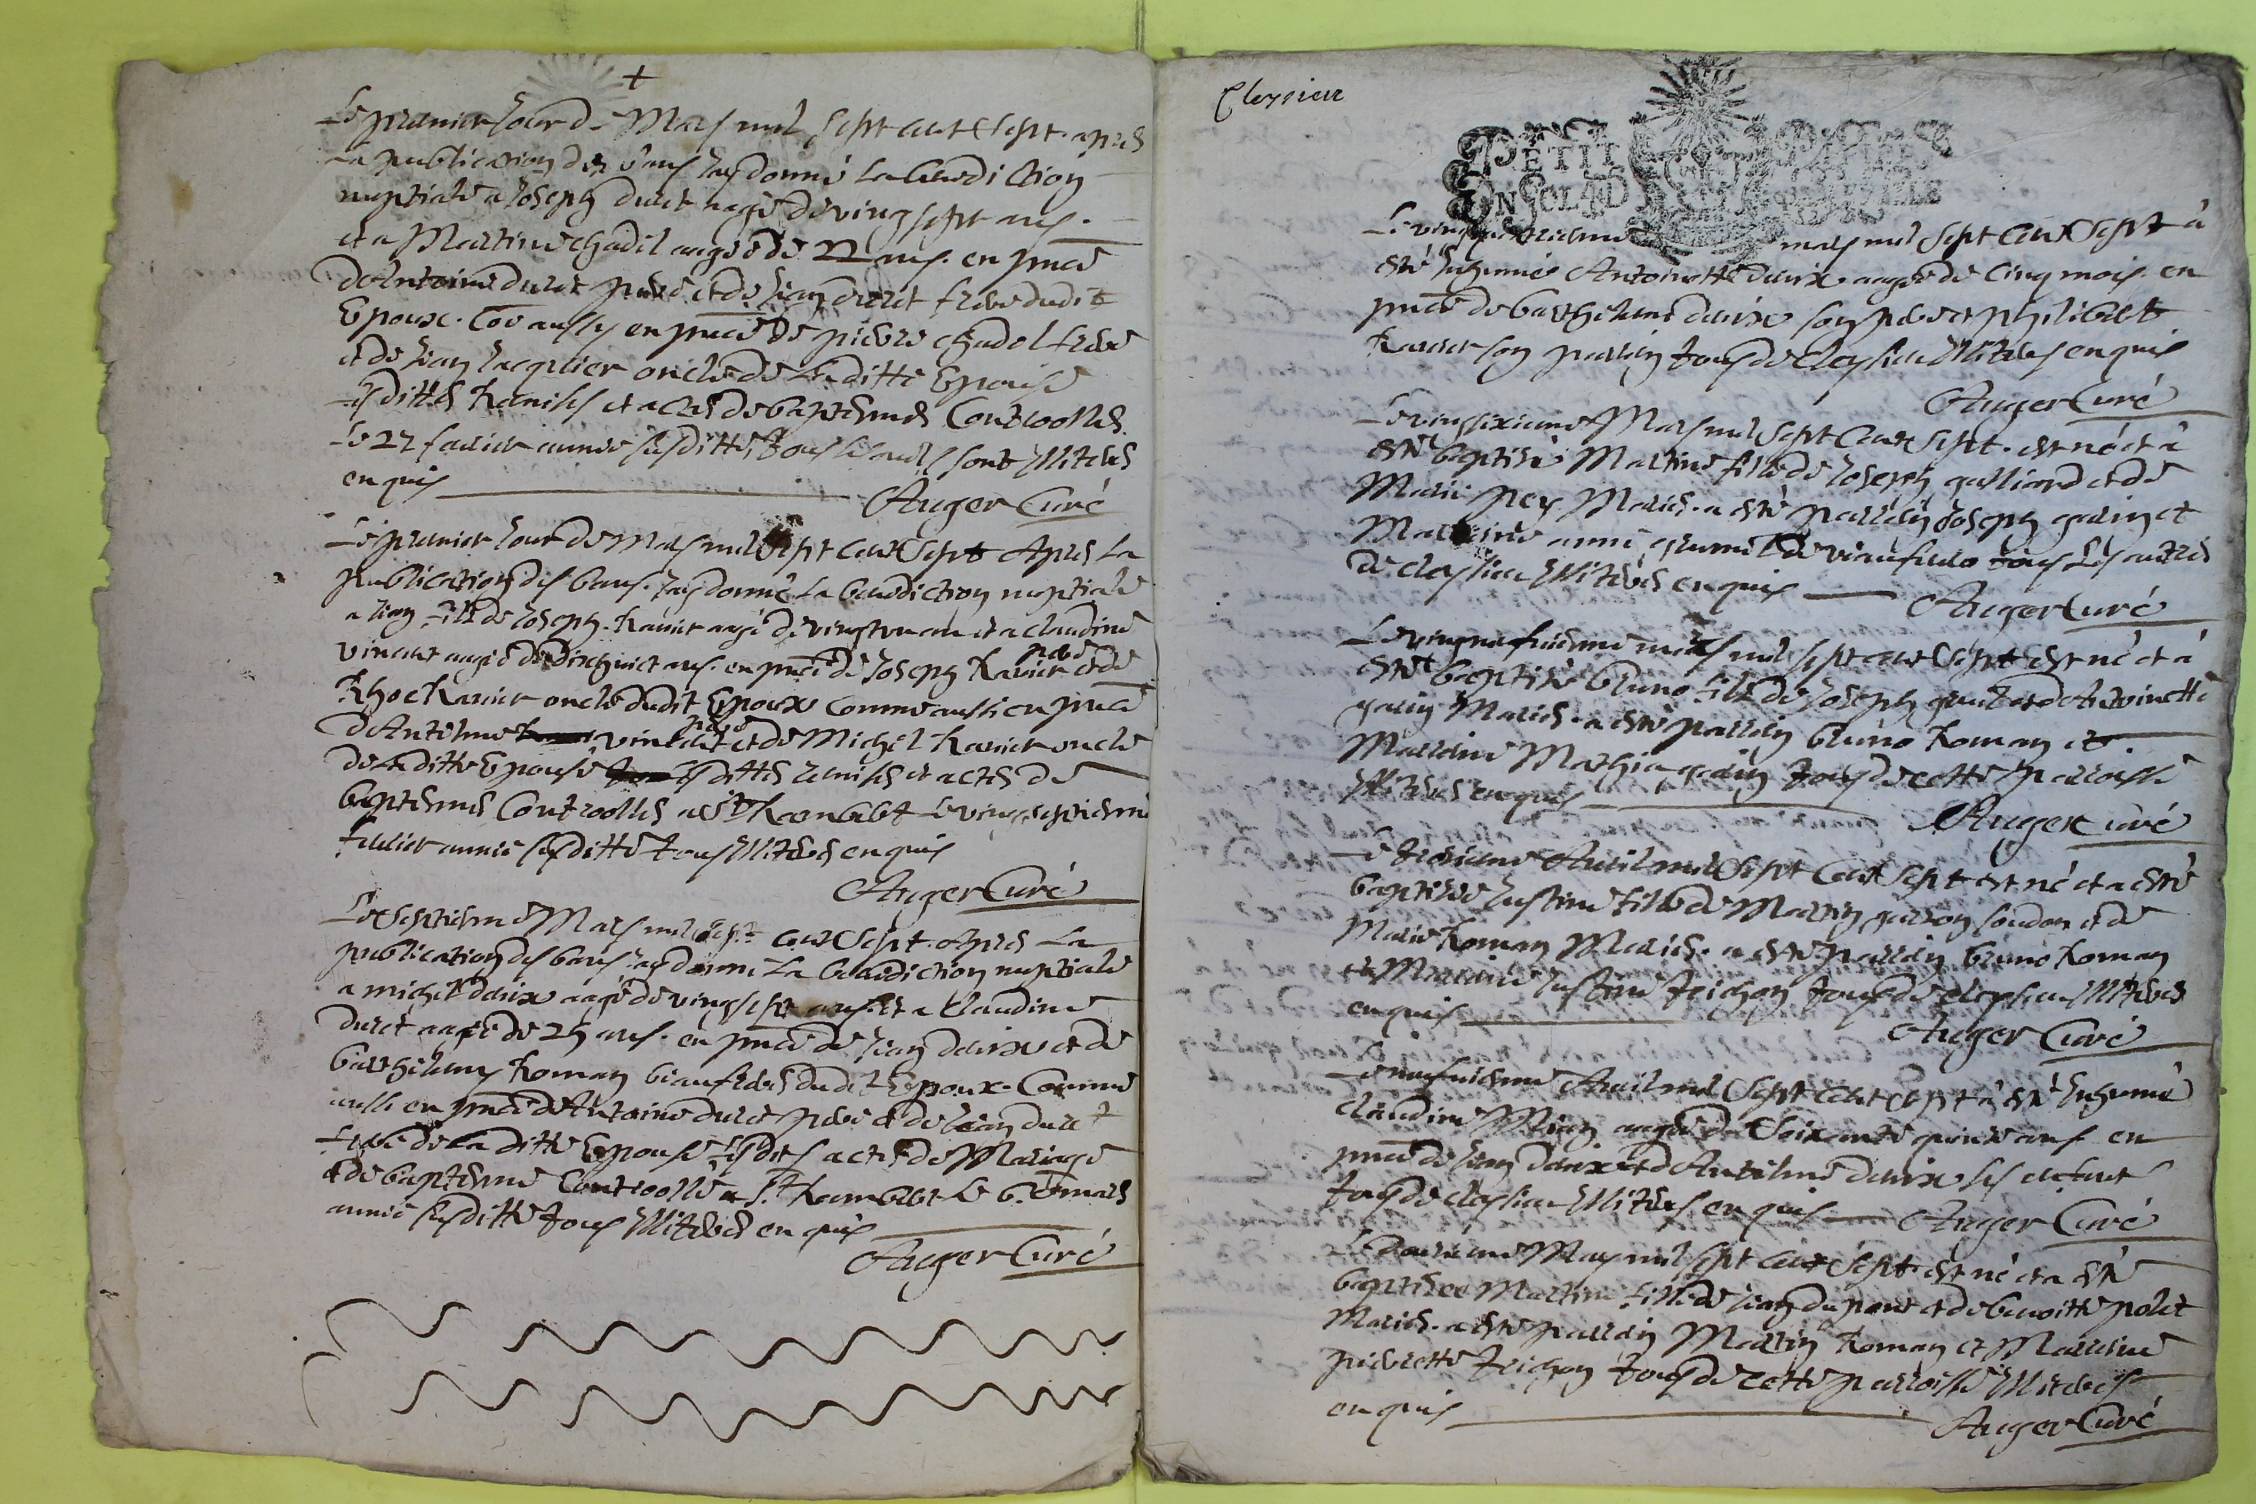 Le premier Jour de Mars mil sept cent sept apres
la publication des bans Jay donné la benediction
nuptiale a Joseph duret aagé de ving sept ans.
et a Martine chadel aagée de 22 ans. en pnce
de Antoine duret pere et de Jean duret frere dudit
Epoux. Coe aussy en pnce de pierre chadel frere
et de Jean Jacquier oncle de la ditte Epouse
lesdittes Remises et actes de baptesmes Controolles.
le 27 fevrier année susditte tous lesquels sont Illiteres
enquis
Auger Curé
Le premier Jour de Mars mil sept cent sept Apres La
publication des bans. Jay donné la benediction nuptiale
a Jean fils de Joseph Ravier aagé de vingt un an et a claudine
vincent aagée de Dixhuict ans. en pnce de Joseph Ravier pere et de
Rhoc Ravier oncle dudit Epoux comme aussi en pnce
de Antelme vincent pere et de Michel Ravier oncle
de la ditte Epouse lesdittes remises et actes de
baptesmes Controolles a St Rambert le ving septiesme
fevrier année susditte tous Illiteres enquis
Auger Curé
Le septiesme Mars mil sept cent sept. Apres La
publication des bans Jay donné La benediction nuptiale
a michel daix aagé de ving sept ans. et a Claudine
duret aagée de 25 ans. en pnce de Jean daix et de
barthelemy Roman beaufreres dudit Epoux. Comme
aussi en pnce de Antoine duret pere et de Jean duret
frere de la ditte Epouse lesdits actes de Mariage
et de baptesme Controollé a St Rambert le 6.e mars
année susditte tous Illiteres enquis
Auger Curé
Cleysieu
PETIT PAPIER
UN SOL LA D FEUILLE
Le ving mars mil sept cent sept à
esté Inhumée Antoinette daix aagée de Cinq mois. en
pnce de barthelemy daix son pere et philibert
Ravier son parrin tous de Cleysieu Illiteres enquis
Auger Curé
Le vingsixieme Mars mil sept Cent sept. est né et à
esté baptisée Martine fille de Joseph galliard et de
Marie pey Mariés. a esté parrein Joseph garin et
Marreine anne de viaufieulo tous les autres
de cleysieu Illiteres enquis
Auger Curé
Le vingneufuieme mars mil sept cent sept est né et à
esté baptisé bruno fils de Joseph et de Antoinette
garin Mariés. a esté parrein bruno Roman et.
Marreine Mathia garin tous de cette parroisse
Illiteres enquis
Auger Curé
Le troisieme Avril mil sept Cent sept est né et a esté
baptisée Justine fille de Martin garron et de
Marie Roman Mariés. a esté parrein bruno Roman
et Marreine Justine teichon tous de cleysieu Illiteres
enquis
Auger Curé
Le neufuiesme Avril mil sept cent sept à esté Inhumée
claudine aagée de soixante quinze ans en
pnce de Jean daix et de Antelme daix ses enfant
tous de cleysieu Illiteres enquis
Auger Curé
Le May mil sept cent sept est né et a esté
baptisee Martine fille de Jean dupont et de benoitte polet
Mariés. a esté parrein Martin Roman et Marreine
pierrette teichon tous de cette parroisse Illiteres
enquis
Auger Curé